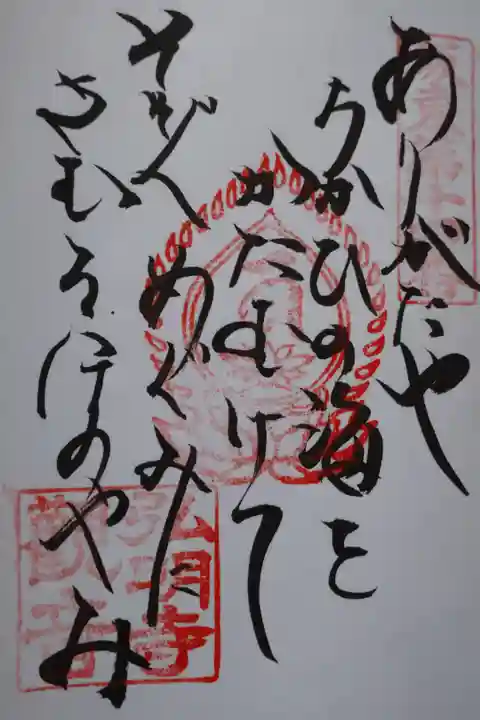 ありがたや
ちかひの海を
かたむけて
そゝぐめぐみに
さむるほのやみ
弘明寺
觀音